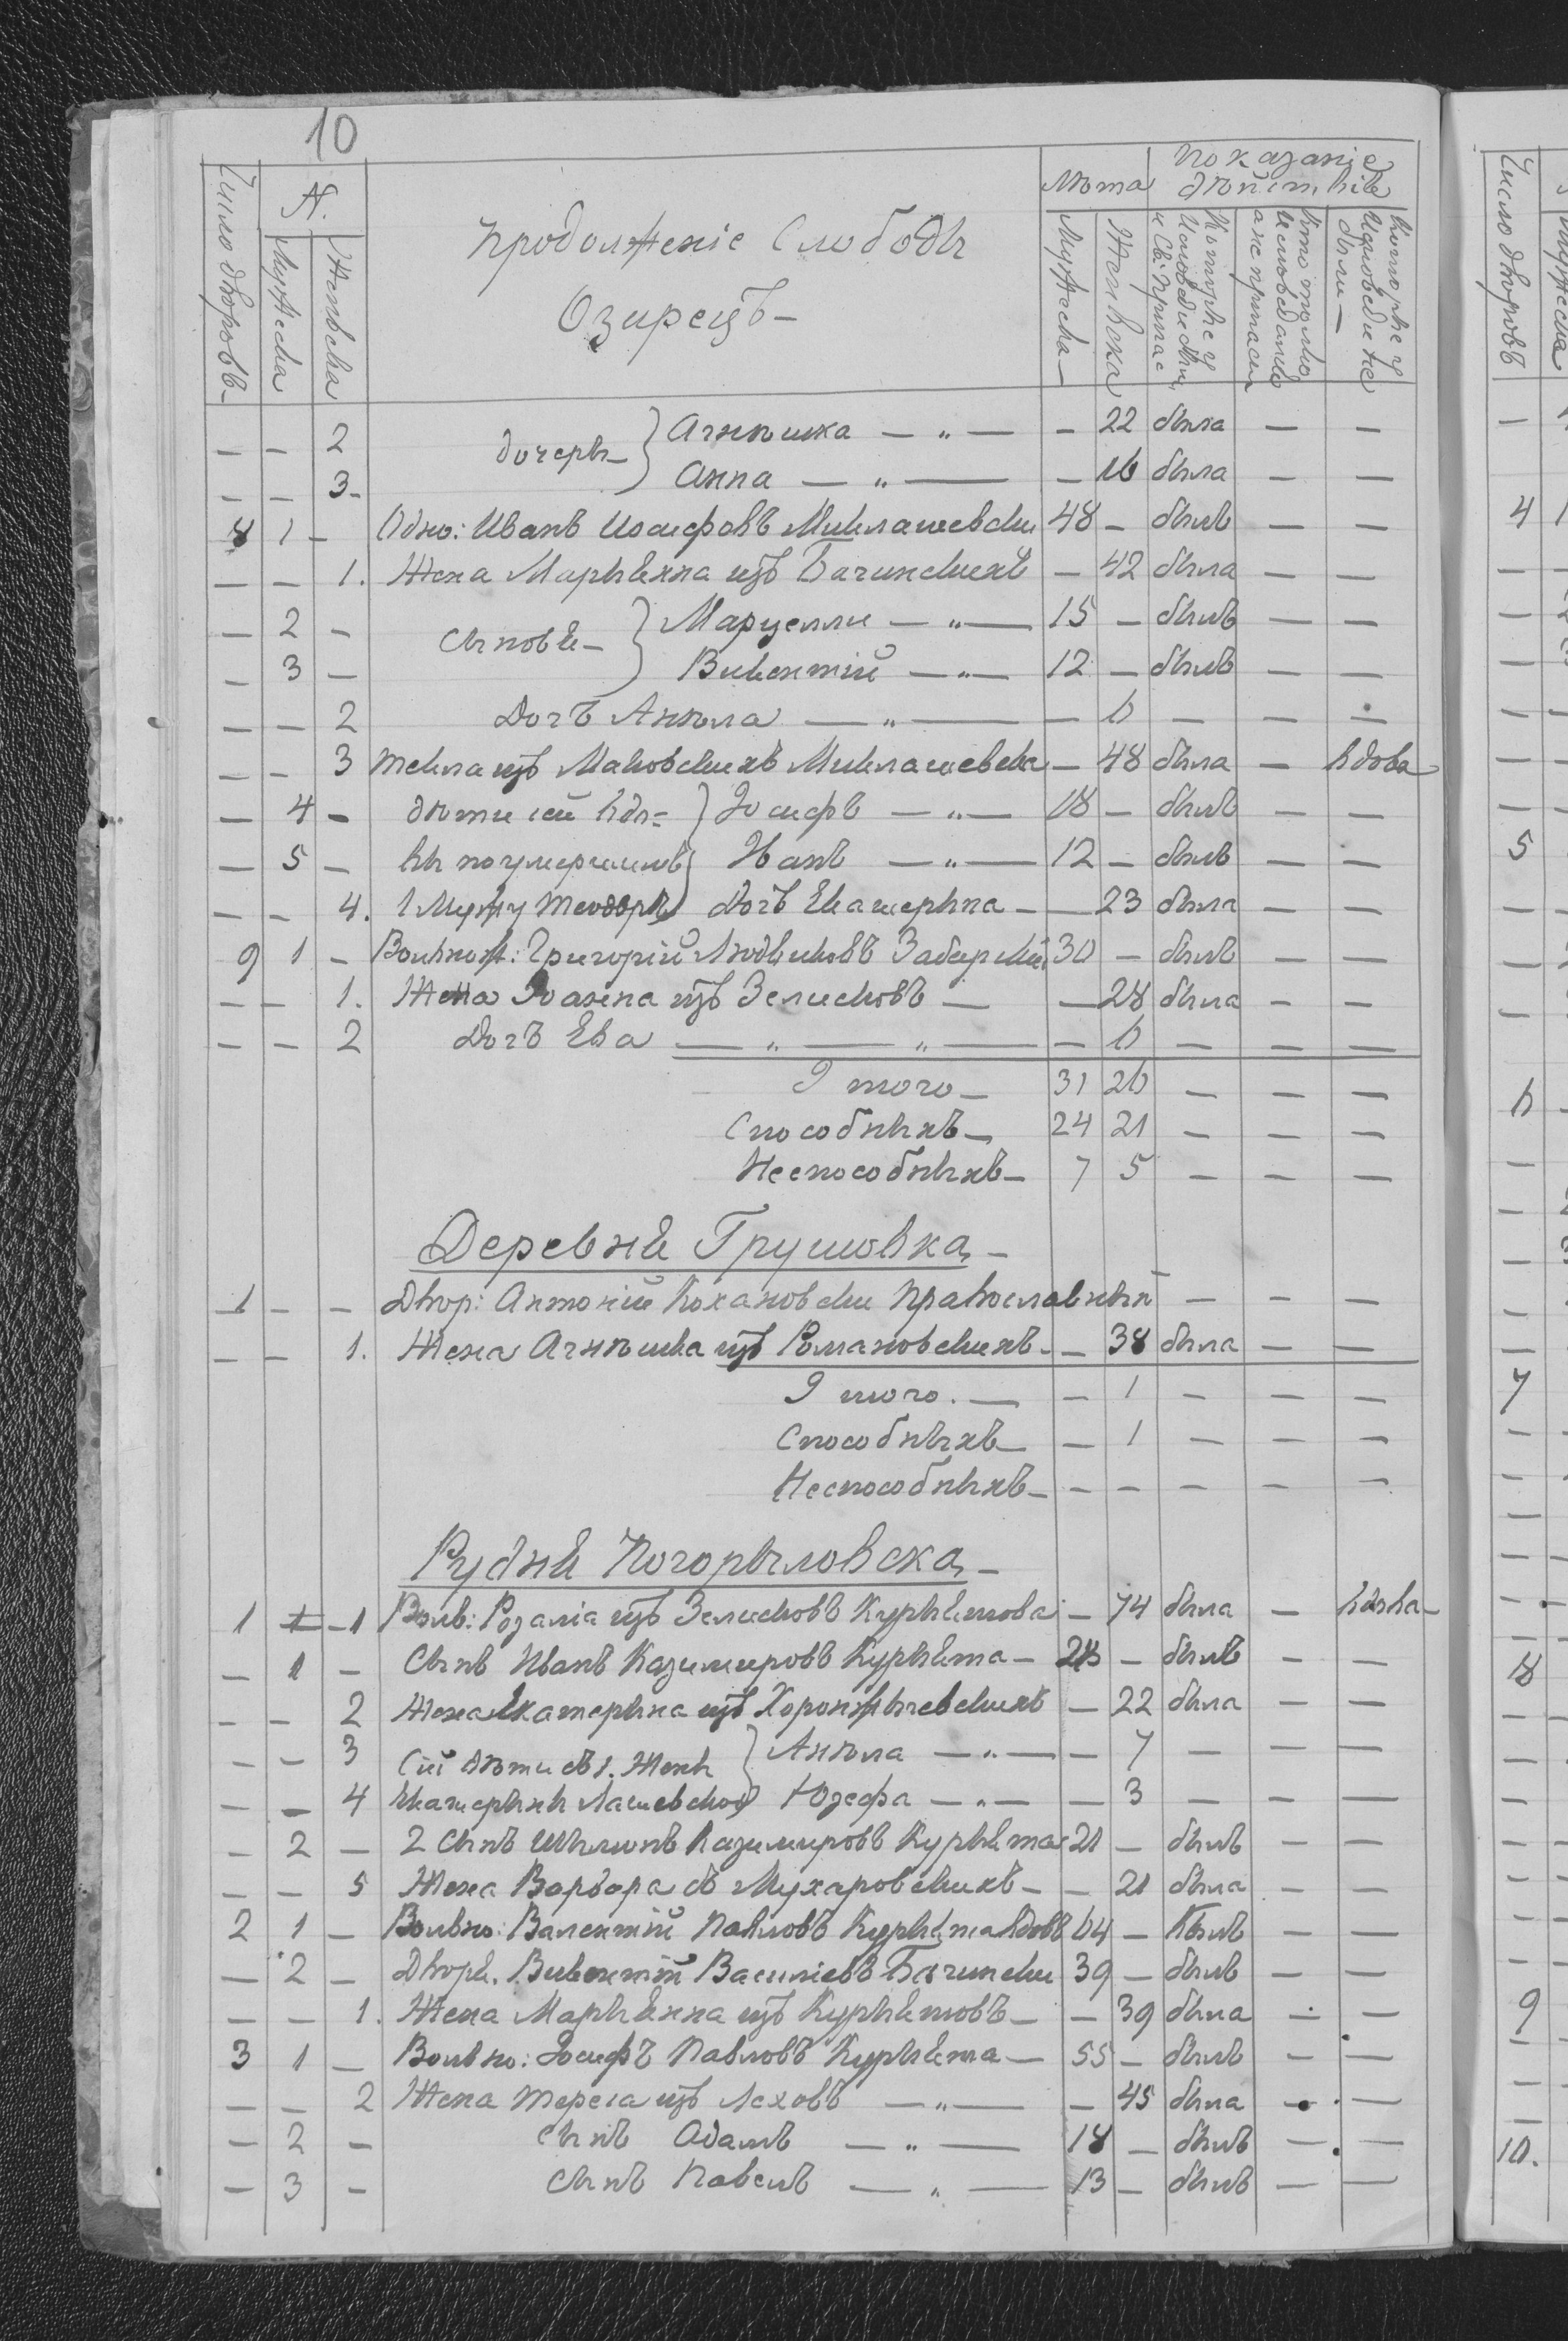 10
Число дворовъ
N.
Мужеска
Женьска
Продолженіе Слободы
Озирецъ –
Лѣта
Мужеска –
Женьска
Показаніе дѣйствія
Которые у Исповеди были, и Св. Причас
Кто только исповедался а не причасен
Которые у Исповеди не были –
– – 2 дочеры – Агнѣшка – „ – – 22 была – –
– – 3 – Анна – „ – – 16 была – –
8 1 – Одно: Иванъ Иосифовъ Миклашевски 48 – былъ – –
– – 1. Жена Марыанна изъ Багинскихъ – 42 была – –
– 2 – Сыновя – Марцелли – „ – 15 – былъ – –
– 3 – Викентій – „ – 12 – былъ – –
– – 2 Дочъ Анѣла – „ – – 6 – – –
– – 3 Текла изъ Маковскихъ Миклашевска – 48 была – вдова
– 4 – дѣти сей вдо= Іосифъ – „ – 18 – былъ – –
– 5 – вы по умершимъ Иванъ – „ – 12 – былъ – –
– – 4. Мужу Теодоры Дочъ Екатерына – – 23 была – –
9 1 – Вольнож: Григорій Людвиковъ Забирскій 30 – былъ – –
– – 1. Жена Іоанна изъ Зелисковъ – – 28 была – –
– – 2 Дочъ Ева – „ – „ – – 6 – – –
Итого – 31 26 – – –
Способныхъ – 24 21 – – –
Неспособныхъ – 7 5 – – –
Деревня Грушовка –
1 – – Двор: Антоній Кохановски Православный – – –
– – 1. Жена Агнѣшка изъ Романовскихъ – – 38 была – –
Итого. – – 1 – – –
Способныхъ – – 1 – – –
Неспособныхъ – – – – – –
Рудня Погорѣловска –
1 1 – 1 Вольн: Розалія изъ Зелисковъ Курыятова – 74 была – вдова –
– 1 – Сынъ Иванъ Казимировъ Курыята – 28 – былъ – –
– – 2 Жена Екатерына изъ Хоронжычевскихъ – 22 была – –
– – 3 Сій дѣти съ 1. Жены Анѣла – „ – – 7 – – –
– – 4 Екатерыны Лашевской Юзефа – „ – – 3 – – –
– 2 – 2 Сынъ Шымонъ Казимировъ Курыята 21 – былъ – –
– – 5 Жена Варвара съ Мухаровскихъ – – 21 была – –
2 1 – Вольно: Валентій Павловъ Курыята вдовъ 64 – былъ – –
– 2 – Дворя. Викентій Василіевъ Багински 39 – былъ – –
– – 1. Жена Марыянна изъ Курыятовъ – – 39 была – –
3 1 – Вольно: Іосифъ Павловъ Курыята – 55 – былъ – –
– – 2 Жена Тереса изъ Леховъ – „ – – 45 была – –
– 2 – Сынъ Адамъ – „ – 18 – былъ – –
– 3 – Сынъ Павелъ – „ – 13 – былъ – –
Число дворовъ
Мужеска
4
5
6
7
8
9
10.